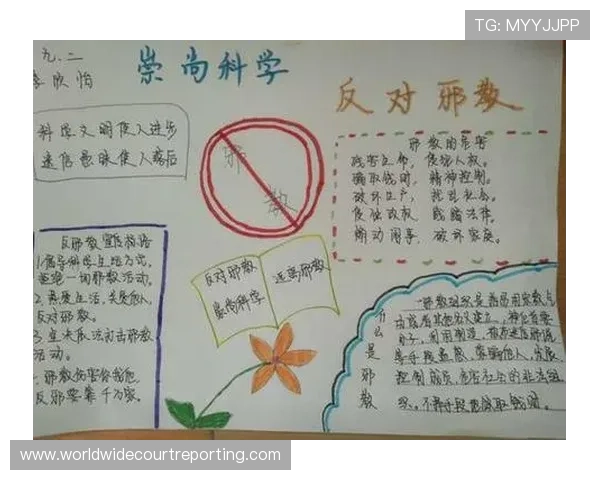 TG: MYYJJPP
九.二
李欣怡
崇尚科学
反对邪教
科学文明使人进步
迷信愚昧使人落后
邪
教
邪教的危害
残害生命，侵犯人权。
骗取钱财，精神控制。
破坏生产，扰乱社会。
侵蚀政权，践踏法律。
煽动闹事，破坏家庭。
反邪教宣传标语
1.倡导科学生活方式，
拒绝一切邪教活动。
2.热爱生活，关爱他人，
反对邪教。
3.坚决依法打击邪教
活动。
邪教伤害你我他，
反邪要靠千万家。
反对邪教
崇尚科学
远离邪教
什么是邪教
邪教组织是指冒用宗教、气
功或者其他名义建立，神化首要
分子，利用制造、散布迷信邪说
等手段蛊惑、蒙骗他人，发展、
控制成员，危害社会的非法组
织。不择手段地敛取钱财。
www.worldwidecourtreporting.com